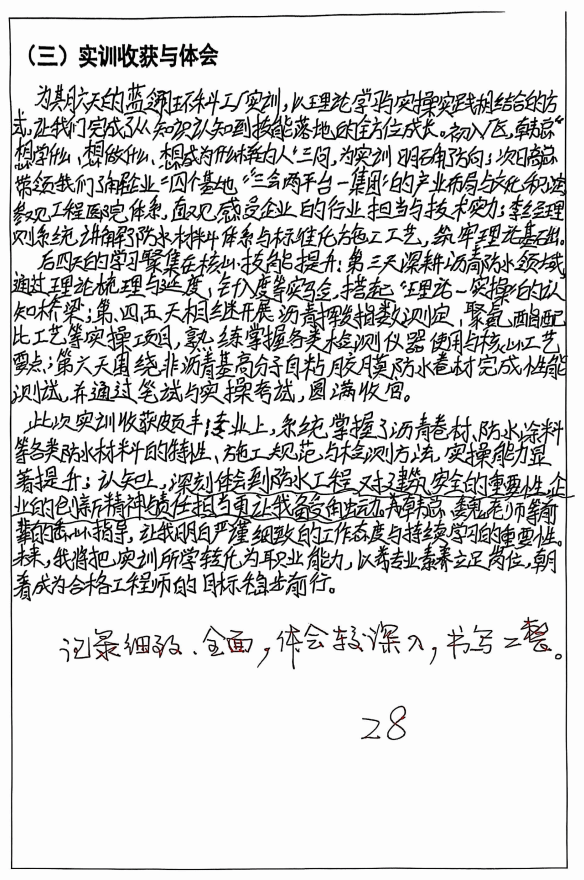 （三）实训收获与体会
为期六天的蓝翎环科工厂实训，以理论学习与实操实践相结合的方
式，让我们完成了从知识认知到技能落地的全方位成长。初入厂区，韩总“
想学什么、想做什么、想成为什么样的人”三问，为实训明确方向；次日高总
带领我们了解企业“四个基地”“三会两平台一集团”的产业布局与文化和
参观工程医院体系，直观感受企业的行业担当与技术实力；李经理
则系统讲解了防水材料体系与标准化施工工艺，筑牢理论基础。
后四天的学习聚集在核心技能提升：第三天深耕沥青防水领域，
通过理论梳理与延度、针入度等实验，搭起“理论—实操”的认
知桥梁；第四、五天相继开展沥青指数测定、聚氨酯配
比工艺等实操项目，熟练掌握各类检测仪器使用与核心工艺
要点；第六天围绕非沥青基高分子自粘胶膜防水卷材完成性能
测试，并通过笔试与实操考试，圆满收官。
此次实训收获颇丰：专业上，系统掌握了沥青卷材、防水涂料
等各类防水材料的特性、施工规范与检测方法，实操能力显
著提升；认知上，深刻体会到防水工程对建筑安全的重要性，企
业的创新精神与责任担当更让我备受触动。韩总、老师等前
辈的悉心指导，让我明白严谨细致的工作态度与持续学习的重要性。
未来，我将把实训所学转化为职业能力，以专业素养立足岗位，朝
着成为合格工程师的目标稳步前行。
记录细致、全面，体会较深入，书写工整。
28